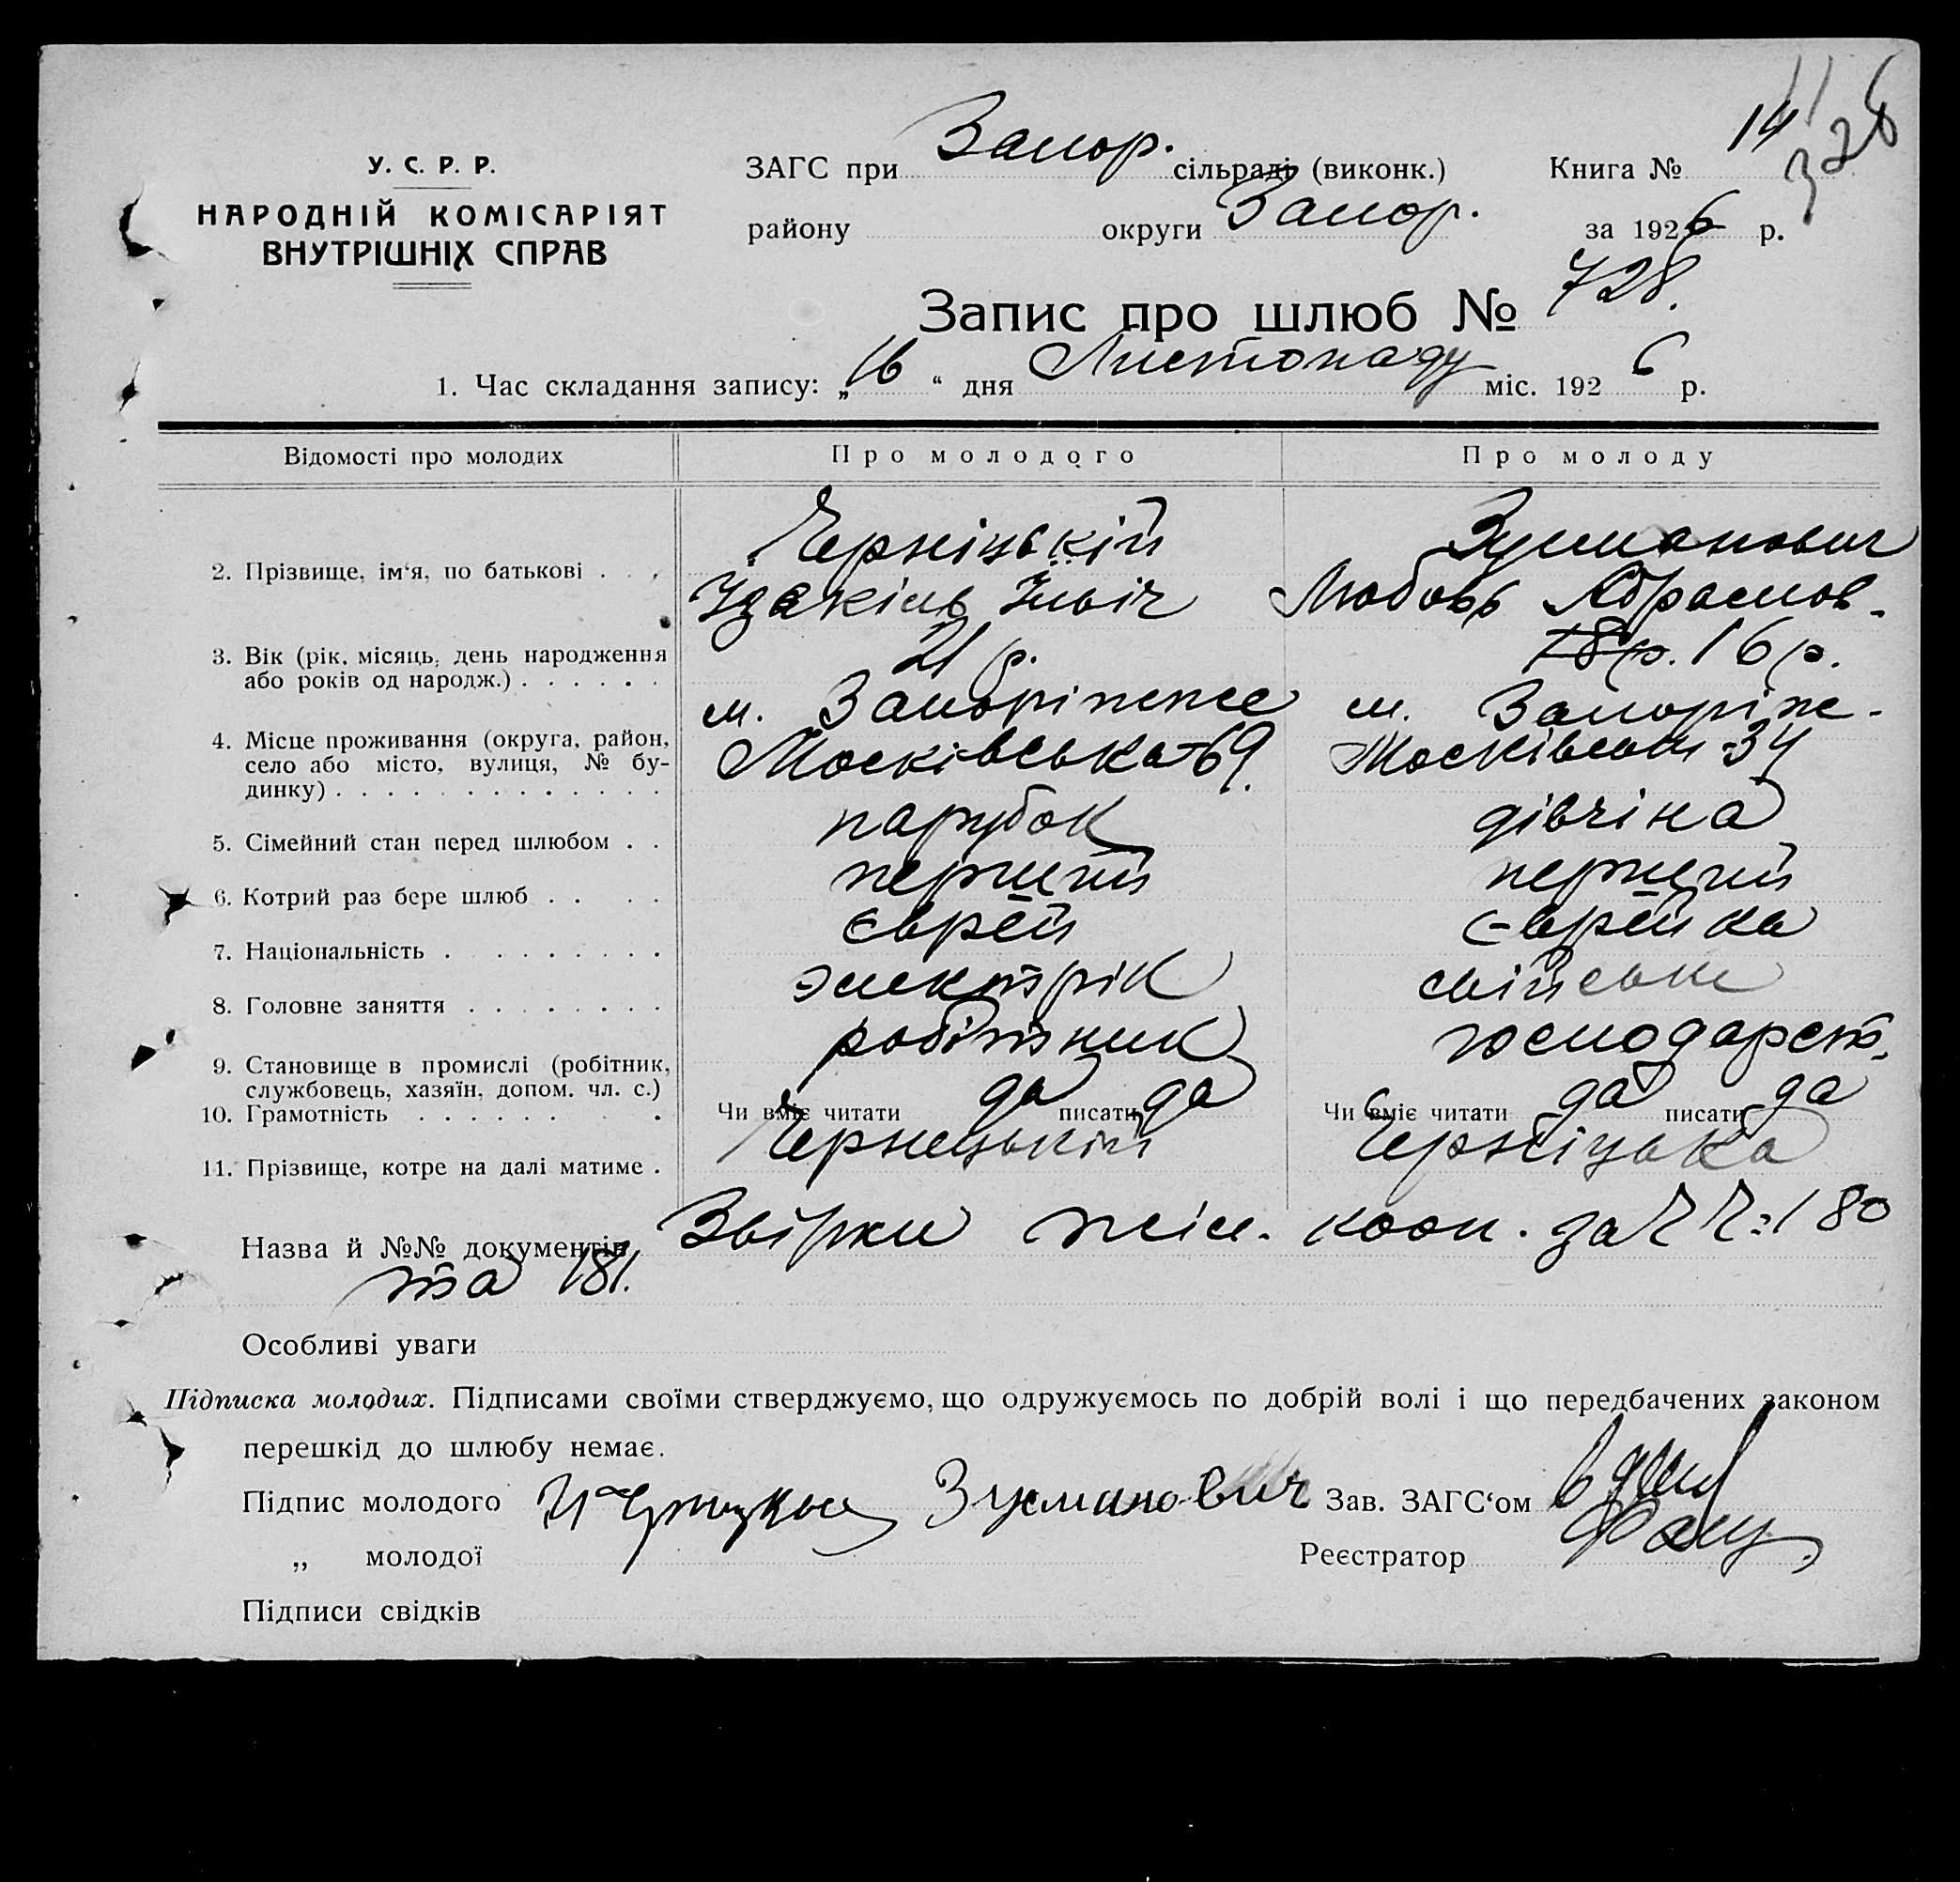 14
326
У. С. Р. Р.
НАРОДНІЙ КОМІСАРІЯТ
ВНУТРІШНІХ СПРАВ
ЗАГС при Запор. сільраді (виконк.) Книга №
району округи Запор. за 1926 р.
Запис про шлюб № 728.
1. Час складання запису: „16“ дня Листопаду міс. 1926 р.
Відомості про молодих Про молодого Про молоду
2. Прізвище, ім‘я, по батькові . . . Черніцькій Зусманович
Ізекіль Ільіч Любовь Абрамов-
3. Вік (рік, місяць, день народження 21 р. 18 р. 16 р.
або років од народж.) . . . . . .
4. Місце проживання (округа, район, м. Запоріжже м. Запоріж-
село або місто, вулиця, № бу- Московська-69. Московськ-34
динку) . . . . . . . . . . . . .
5. Сімейний стан перед шлюбом . . парубок дівчіна
6. Котрий раз бере шлюб . . . . перший перший
7. Національність . . . . . . . . єврей єврейка
8. Головне заняття . . . . . . . . электрік сільське
9. Становище в промислі (робітник, робітник господарст.
службовець, хазяїн, допом. чл. с.)
10. Грамотність . . . . . . . Чи вміє читати да писати да Чи вміє читати да писати да
11. Прізвище, котре на далі матиме . Чернецький Черніцька
Назва й №№ документів Звірки коон. за 180
та 181.
Особливі уваги
Підписка молодих. Підписами своїми стверджуємо, що одружуємось по добрій волі і що передбачених законом
перешкід до шлюбу немає.
Підпис молодого Зусманович Зав. ЗАГС‘ом
„ молодої Реєстратор
Підписи свідків